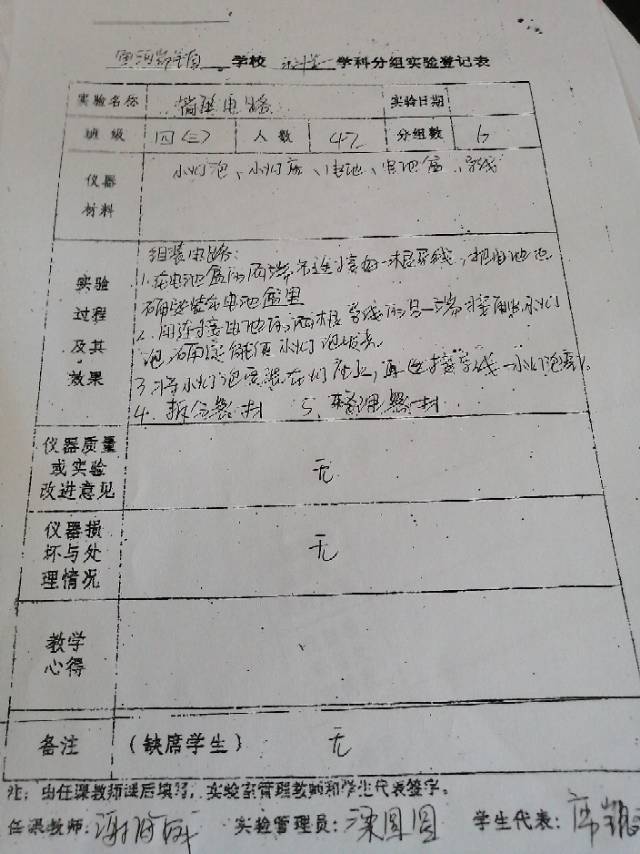 学校 学科分组实验登记表
实验名称 简单电路 实验日期
班级 四(三) 人数 42 分组数 6
仪器材料 小灯泡、小灯座、电池、电池盒、导线
实验过程及其效果
组装电路:
1.在电池盒的两端先连接好一根导线,把电池正
确安装在电池盒里
2.用连接电池的两根导线的另一端接触小灯
泡,确定能使小灯泡发亮。
3.将小灯泡安装在灯座上,再连接导线
4.拆仪器材 5.整理器材
仪器质量或实验改进意见 无
仪器损坏与处理情况 无
教学心得
备注 (缺席学生) 无
注:由任课教师课后填写,实验室管理教师和学生代表签字。
任课教师: 实验管理员:梁圆圆 学生代表: